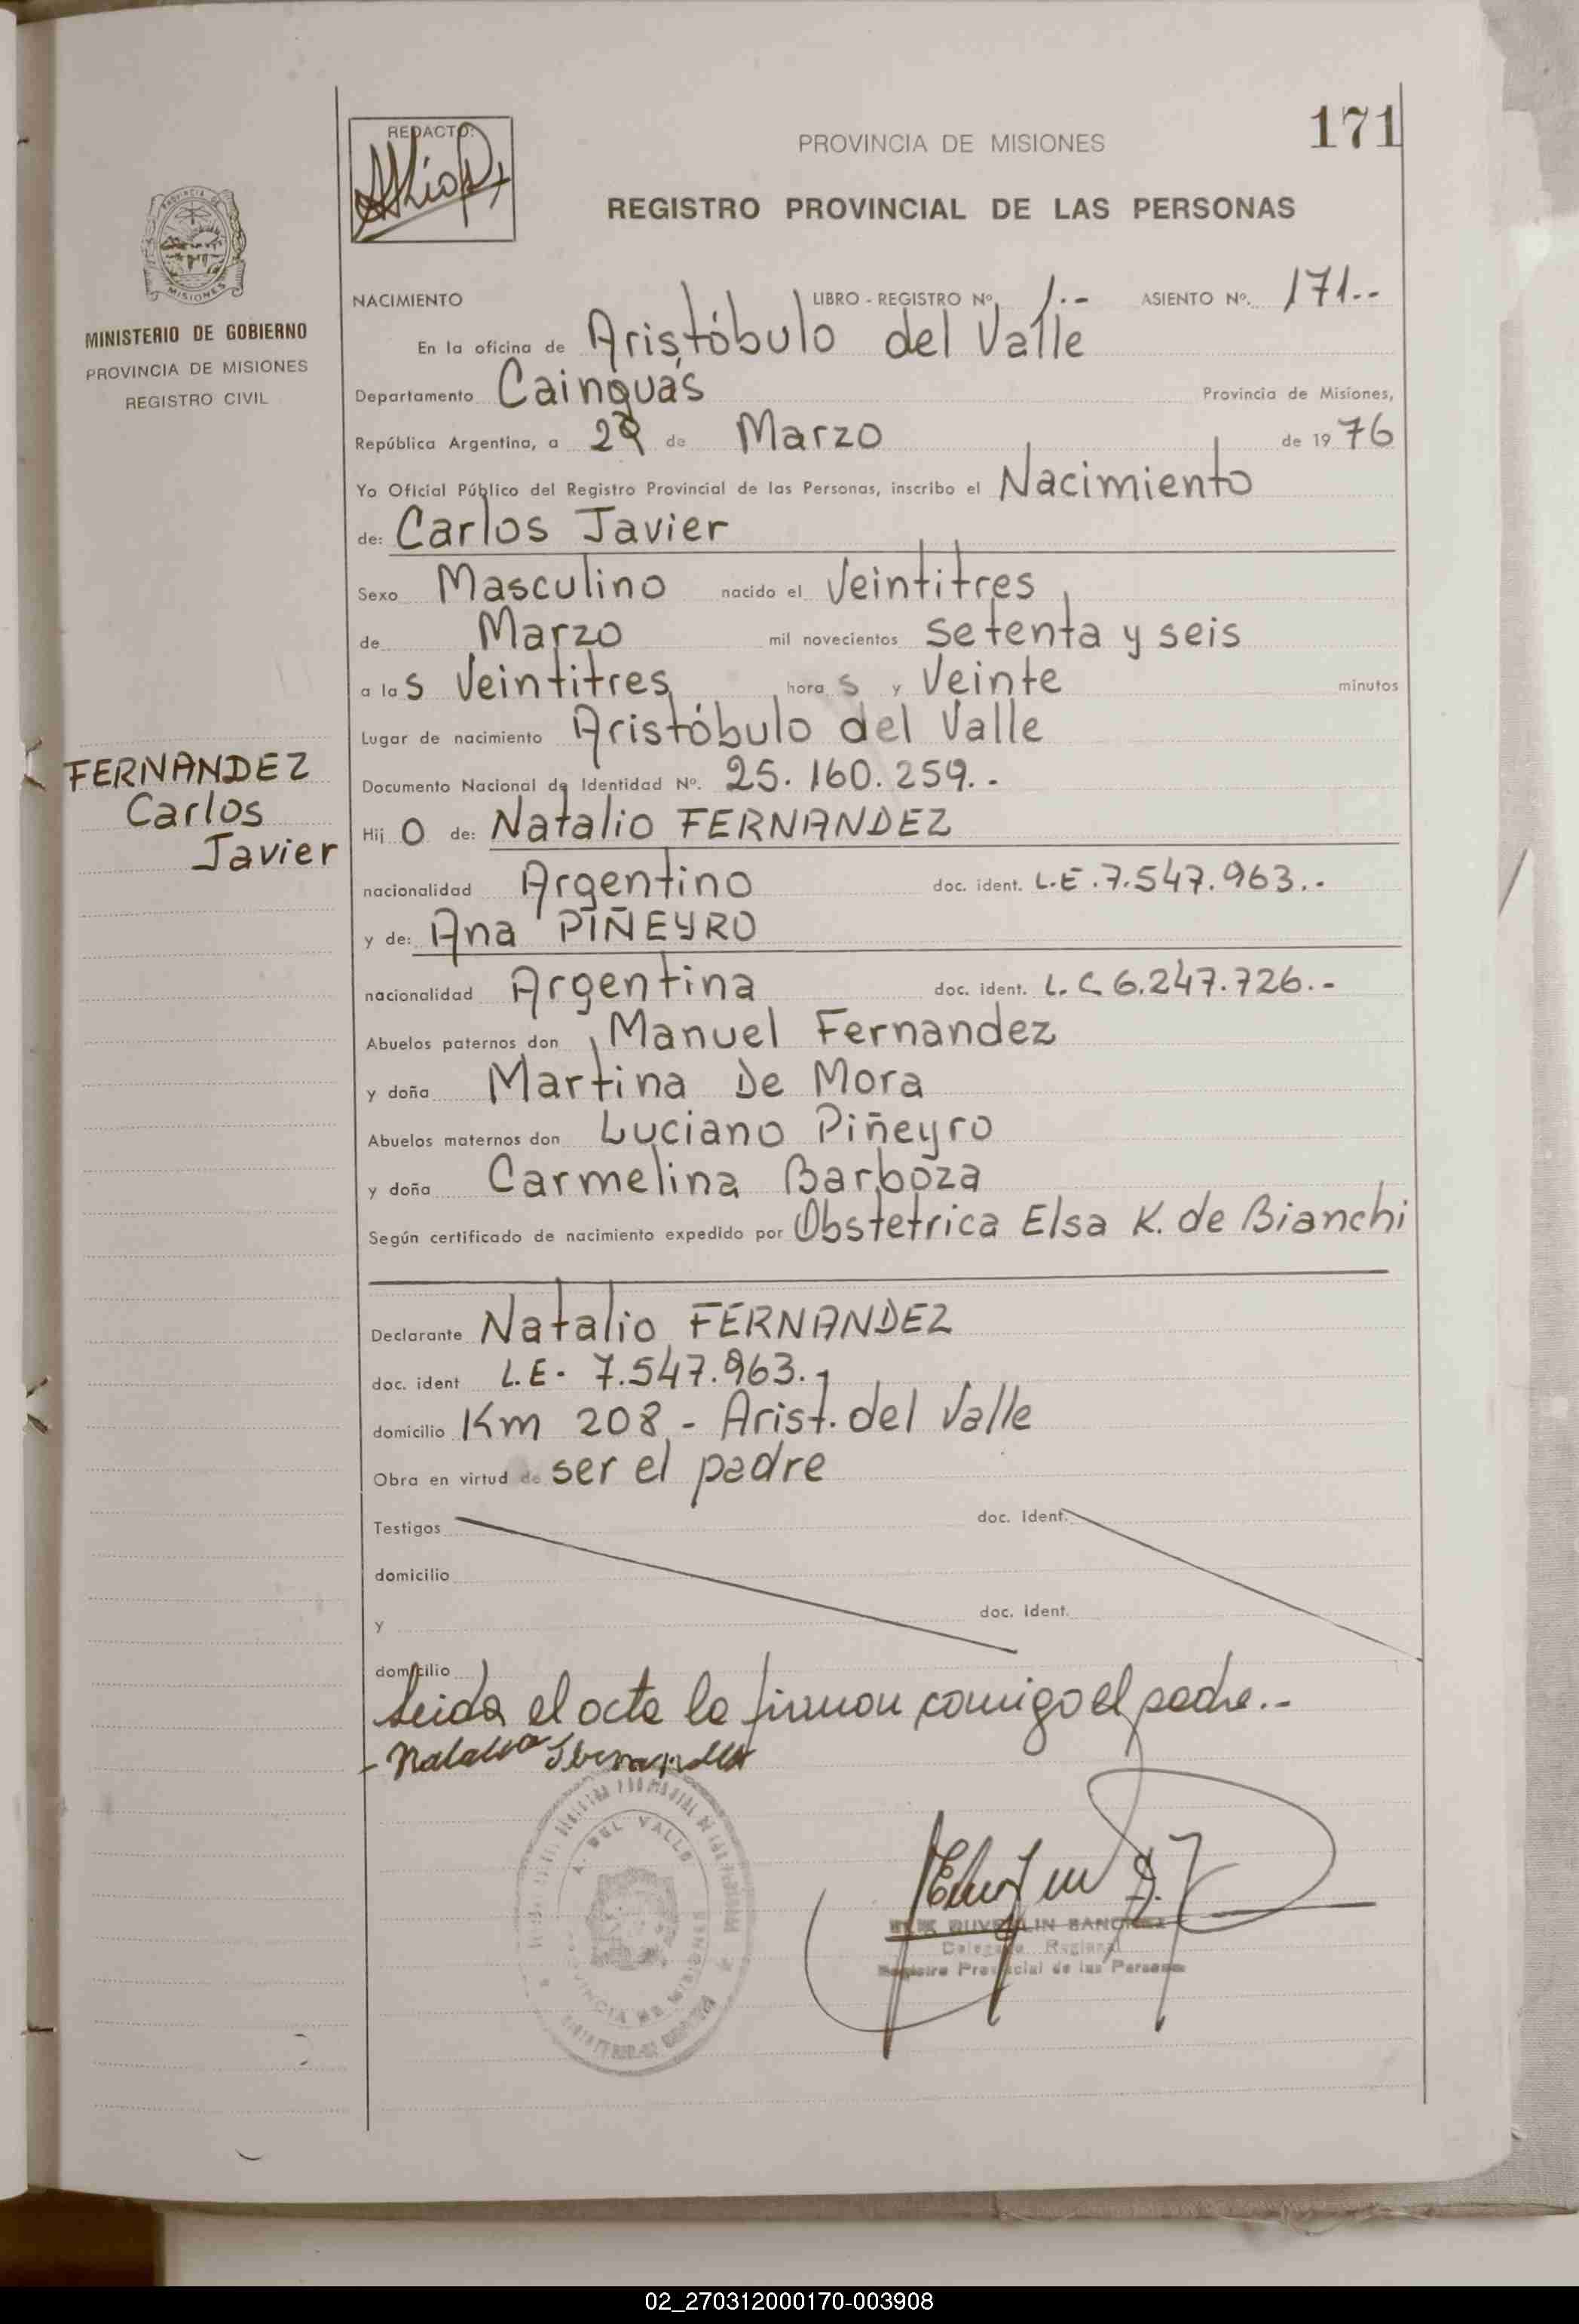 171
REDACTO:
PROVINCIA DE MISIONES
REGISTRO PROVINCIAL DE LAS PERSONAS
MISIONES
MINISTERIO DE GOBIERNO
PROVINCIA DE MISIONES
REGISTRO CIVIL
NACIMIENTO LIBRO - REGISTRO Nº 1.- ASIENTO Nº. 171.-
En la oficina de Aristóbulo del Valle
Departamento Cainguás Provincia de Misiones,
República Argentina, a de Marzo de 1976
Yo Oficial Público del Registro Provincial de las Personas, inscribo el Nacimiento
de: Carlos Javier
Sexo Masculino nacido el Veintitres
de Marzo mil novecientos setenta y seis
a las Veintitres horas y Veinte minutos
Lugar de nacimiento Aristóbulo del Valle
FERNANDEZ
Carlos
Javier
Documento Nacional de Identidad Nº. 25.160.259.-
Hijo de: Natalio FERNANDEZ
nacionalidad Argentino doc. ident. L.E.7.547.963.-
y de: Ana PIÑEYRO
nacionalidad Argentina doc. ident. L.C 6.247.726.-
Abuelos paternos don Manuel Fernandez
y doña Martina De Mora
Abuelos maternos don Luciano Piñeyro
y doña Carmelina Barboza
Según certificado de nacimiento expedido por Obstetrica Elsa K. de Bianchi
Declarante Natalio FERNANDEZ
doc. ident L.E. 7.547.963.-
domicilio Km 208 - Arist. del Valle
Obra en virtud de ser el padre
Testigos doc. Ident.
domicilio
y doc. Ident.
domicilio
Leida el acta la firman comigo el padre.-
A. DEL VALLE
PROVINCIA DE MISIONES
Delegado Regional
Registro Provincial de las Personas
02_270312000170-003908